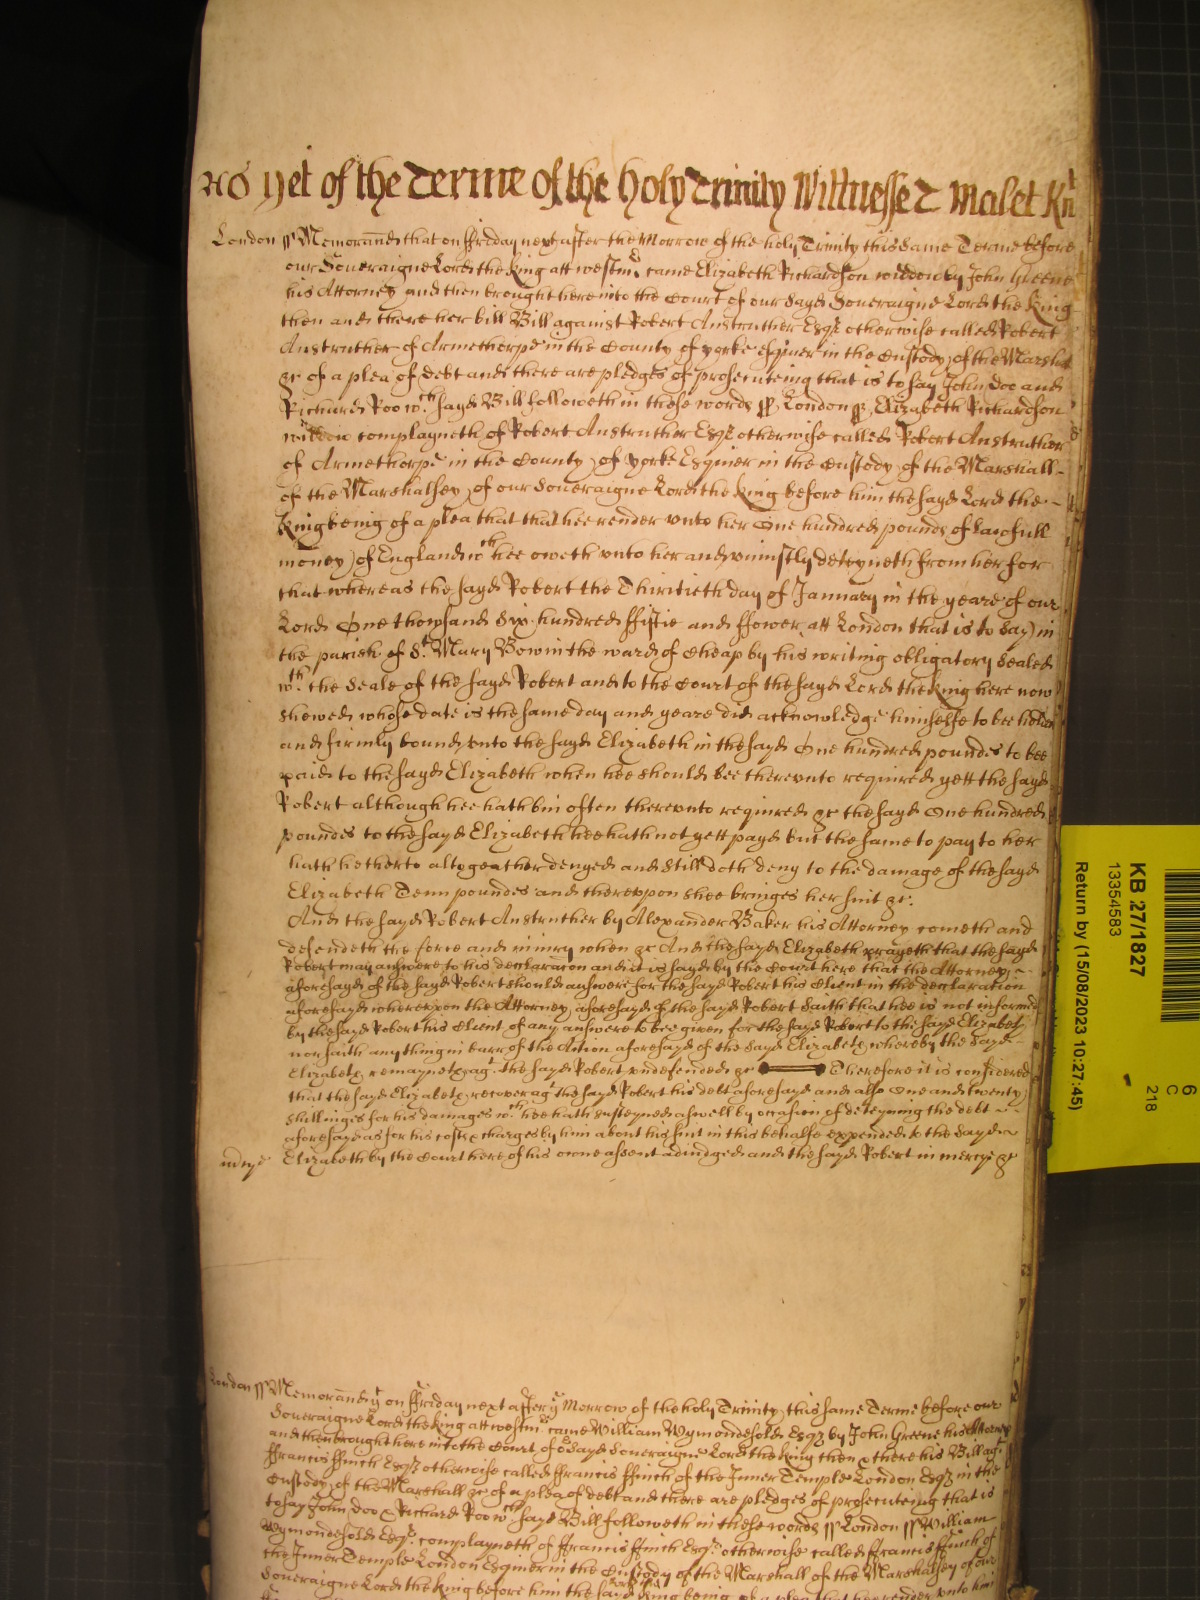 Yet of the Terme of the holy Trinity Wittnesse T Malet Knt
London ss Memorand that on ffriday next after the Morrow of the holy Trinity this same Terme before
our Soueraigne Lord the king att westmr came Elizabeth Richardson widdow by John Greene
his Attorney and then brought here into the Court of our sayd Soueraigne Lord the King
then and there her bill Bill against Robert Anstruther Esqr otherwise called Robert
Anstruther of Armethorpe in the County of yorke esquier in the Custody of the Marshall
&c of a plea of debt and there are pledges of prosecuteing that is to say John Doo and
Richard Roo wch sayd Bill followeth in these words ss London ss Elizabeth Richardson
widdow complayneth of Robert Anstruther Esqr otherwise called Robert Anstruther
of Armethorpe in the County of yorke Esquier in the Custody of the Marshall
of the Marshalsey of our Soueraigne Lord the king before him the sayd Lord the
king being of a plea that that hee render vnto her One hundred pounds of lawfull
money of England wch hee oweth vnto her and vniustly deteyneth from her for
that whereas the sayd Robert the Thirtieth day of January in the yeare of our
Lord One thowsand Six hundred ffiftie and ffower att London that is to say in
the parish of St. Mary Bow in the ward of Cheap by his writing obligatory Sealed
wth. the Seale of the sayd Robert and to the Court of the sayd Lord the king here now
shewed whose date is the same day and yeare did acknowledge himselfe to bee holden
and firmly bound vnto the sayd Elizabeth in the sayd One hundred poundes to bee
paid to the sayd Elizabeth when hee should bee therevnto required yett the sayd
Robert although hee hath bin often therevnto required &c the sayd One hundred
poundes to the sayd Elizabeth hee hath not yett payd but the same to pay to her
hath hetherto altogeather denyed and still doth deny to the damage of the sayd
Elizabeth Tenn poundes and therevpon shee bringes her suit &c.
And the sayd Robert Anstruther by Alexander Baker his Attorney cometh and
defendeth the force and iniury when &c And the sayd Elizabeth prayeth that the sayd
Robert may answere to his declaracon and it is sayd by the Court here that the Attorney
aforesayd of the sayd Robert should answere for the sayd Robert his Client in the declaration
aforesayd wherevpon the Attorney aforesayd of the sayd Robert Saith that hee is not informed
by the sayd Robert his Client of any answere to bee given for the sayd Robert to the sayd Elizabeth
nor saith any thing in barr of the Action aforesayd of the sayd Elizabeth whereby the sayd
Elizabeth remayneth ag. the sayd Robert vndefended &c Therefore it is considered
that the sayd Elizabeth recover agt the sayd Robert his debt aforesayd and also One and twenty
shillinges for his damages wch hee hath susteyned aswell by occasion of deteyning the debt
aforesayd as for his costs & charges by him about his suit in this behalfe expended to the sayd
Elizabeth by the Court here of his owne assent adiudged and the sayd Robert in mercye &c
London ss Memorand yt on ffriday next after ye Morrow of the holy Trinity this same Terme before our
Soueraigne Lord the king att westmr came William Wymondesold Esqr by John Greene his Attorney
and then brought here into the Court of or sayd Soueraigne Lord the king then & there his Bill agt
ffrancis ffinch Esqr otherwise called ffrancis ffinch of the Inner Temple London Esqr in the
Custody of the Marshall &c of a plea of debt and there are pledges of prosecuteing that is
to say John Doo & Richard Roo wch sayd Bill followeth in these words ss London ss William
Wymondesold Esqr. complayneth of ffrancis ffinch Esqr. otherwise called ffrancis ffinch of
the Inner Temple London Esquier in the Custody of the Marshall of the Marshalsey of our
Soueraigne Lord the king before him the sayd king being of a plea that hee render vnto him
KB 27/1827
13354583
Return by (15/08/2023 10:27:45)
6
C
218